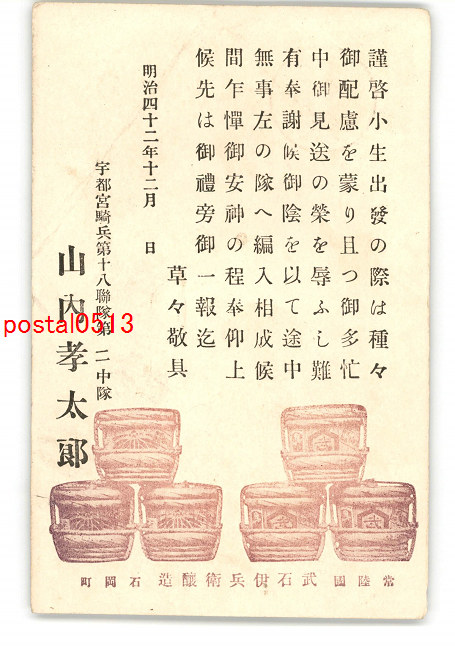 謹啓小生出發の際は種々
御配慮を蒙り且つ御多忙
中御見送の榮を辱ふし難
有奉謝候御陰を以て途中
無事左の隊へ編入相成候
間乍憚御安神の程奉仰上
候先は御禮旁御一報迄
草々敬具
明治四十二年十二月　日
宇都宮騎兵第十八聯隊第二中隊
山內孝太郎
postal0513
常陸國　武石伊兵衛釀造　石岡町